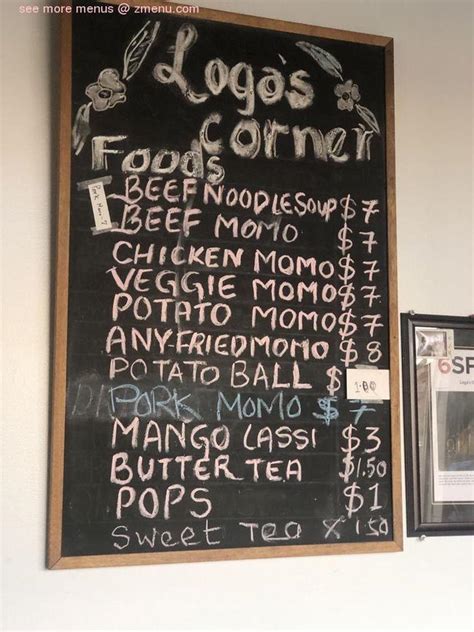 see more menus @ zmenu.com
Loga's
corner
Foods
BEEF NOODLE SOUP $7
BEEF MOMO $7
CHICKEN MOMO $7
VEGGIE MOMO $7
POTATO MOMO $7
ANY FRIED MOMO $8
POTATO BALL $
PORK MOMO $7
MANGO LASSI $3
BUTTER TEA $1.50
POPS $1
Sweet Tea X 1.50
6SF